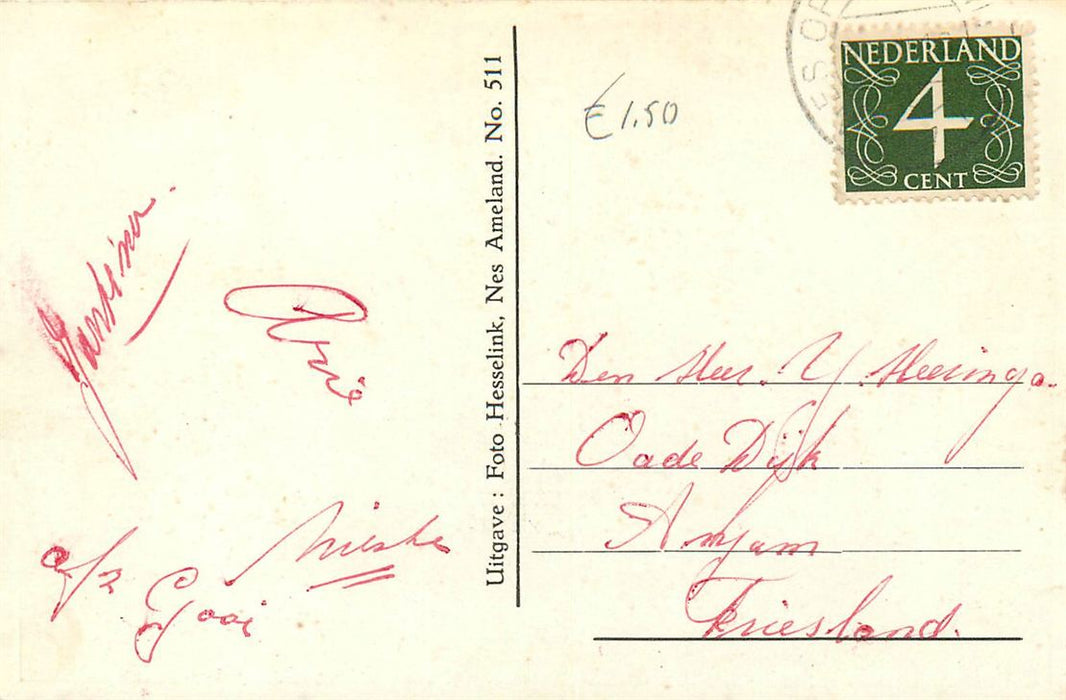 Jantina
Arie
Nieske
a/z Gooi
Uitgave : Foto Hesselink, Nes Ameland. No. 511
€ 1.50
NEDERLAND
4
CENT
Den Heer. Y. Heeringa.
Oude Dijk
Anjum
Friesland.